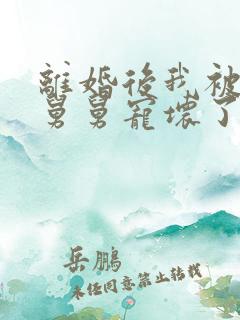 離婚後我被
舅舅寵壞了
岳鵬
未任同意禁止转载